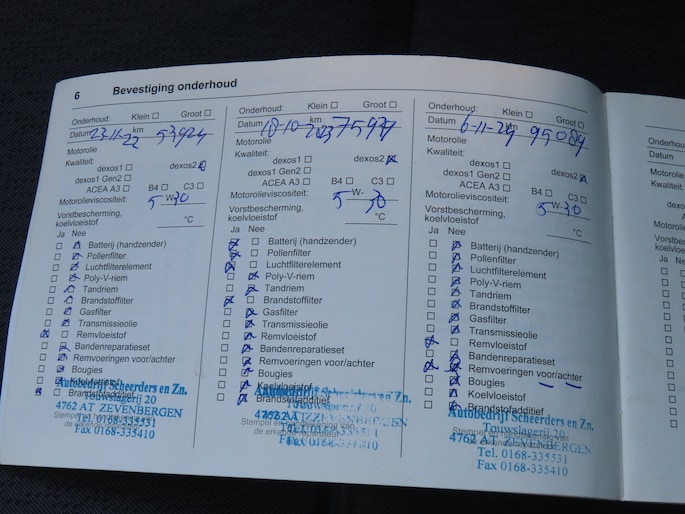 6 Bevestiging onderhoud
Onderhoud: Klein ☐ Groot ☐
Datum 23-11-22 km 53924
Motorolie
Kwaliteit:
dexos1 ☐ dexos2 ☒
dexos1 Gen2 ☐
ACEA A3 ☐ B4 ☐ C3 ☐
Motorolieviscositeit: 5 W-30
Vorstbescherming,
koelvloeistof °C
Ja Nee
☐ ☒ Batterij (handzender)
☐ ☒ Pollenfilter
☐ ☒ Luchtfilterelement
☐ ☒ Poly-V-riem
☐ ☒ Tandriem
☐ ☒ Brandstoffilter
☐ ☒ Gasfilter
☐ ☒ Transmissieolie
☒ ☐ Remvloeistof
☐ ☒ Bandenreparatieset
☐ ☒ Remvoeringen voor/achter
☐ ☒ Bougies
Koelvloeistof
Brandstofadditief
Autobedrijf Scheerders en Zn.
Touwslagerij 20
4762 AT ZEVENBERGEN
Tel. 0168-335531
Fax 0168-335410
Onderhoud: Klein ☐ Groot ☐
Datum 18-10-2023 km
Motorolie
Kwaliteit:
dexos1 ☐ dexos2 ☒
dexos1 Gen2 ☐
ACEA A3 ☐ B4 ☐ C3 ☐
Motorolieviscositeit: 5 W-30
Vorstbescherming,
koelvloeistof °C
Ja Nee
☒ ☐ Batterij (handzender)
☒ ☐ Pollenfilter
☒ ☐ Luchtfilterelement
☐ ☒ Poly-V-riem
☐ ☒ Tandriem
☒ ☐ Brandstoffilter
☐ ☒ Gasfilter
☐ ☒ Transmissieolie
☐ ☒ Remvloeistof
☐ ☒ Bandenreparatieset
☐ ☒ Remvoeringen voor/achter
☐ ☒ Bougies
☐ ☒ Koelvloeistof
☐ ☒ Brandstofadditief
Onderhoud: Klein ☐ Groot ☐
Datum 6-11-24 km 95089
Motorolie
Kwaliteit:
dexos1 ☐ dexos2 ☒
dexos1 Gen2 ☐
ACEA A3 ☐ B4 ☐ C3 ☐
Motorolieviscositeit: 5 W-30
Vorstbescherming,
koelvloeistof °C
Ja Nee
☐ ☒ Batterij (handzender)
☐ ☒ Pollenfilter
☐ ☒ Luchtfilterelement
☐ ☒ Poly-V-riem
☐ ☒ Tandriem
☐ ☒ Brandstoffilter
☐ ☒ Gasfilter
☐ ☒ Transmissieolie
☒ ☐ Remvloeistof
☐ ☒ Bandenreparatieset
☒ ☒ Remvoeringen voor/achter
☐ ☒ Bougies
☐ ☒ Koelvloeistof
☐ ☒ Brandstofadditief
Autobedrijf Scheerders en Zn.
Touwslagerij 20
4762 AT ZEVENBERGEN
Tel. 0168-335531
Fax 0168-335410
Onderhoud:
Datum
Motorolie
Kwaliteit:
Ja Nee